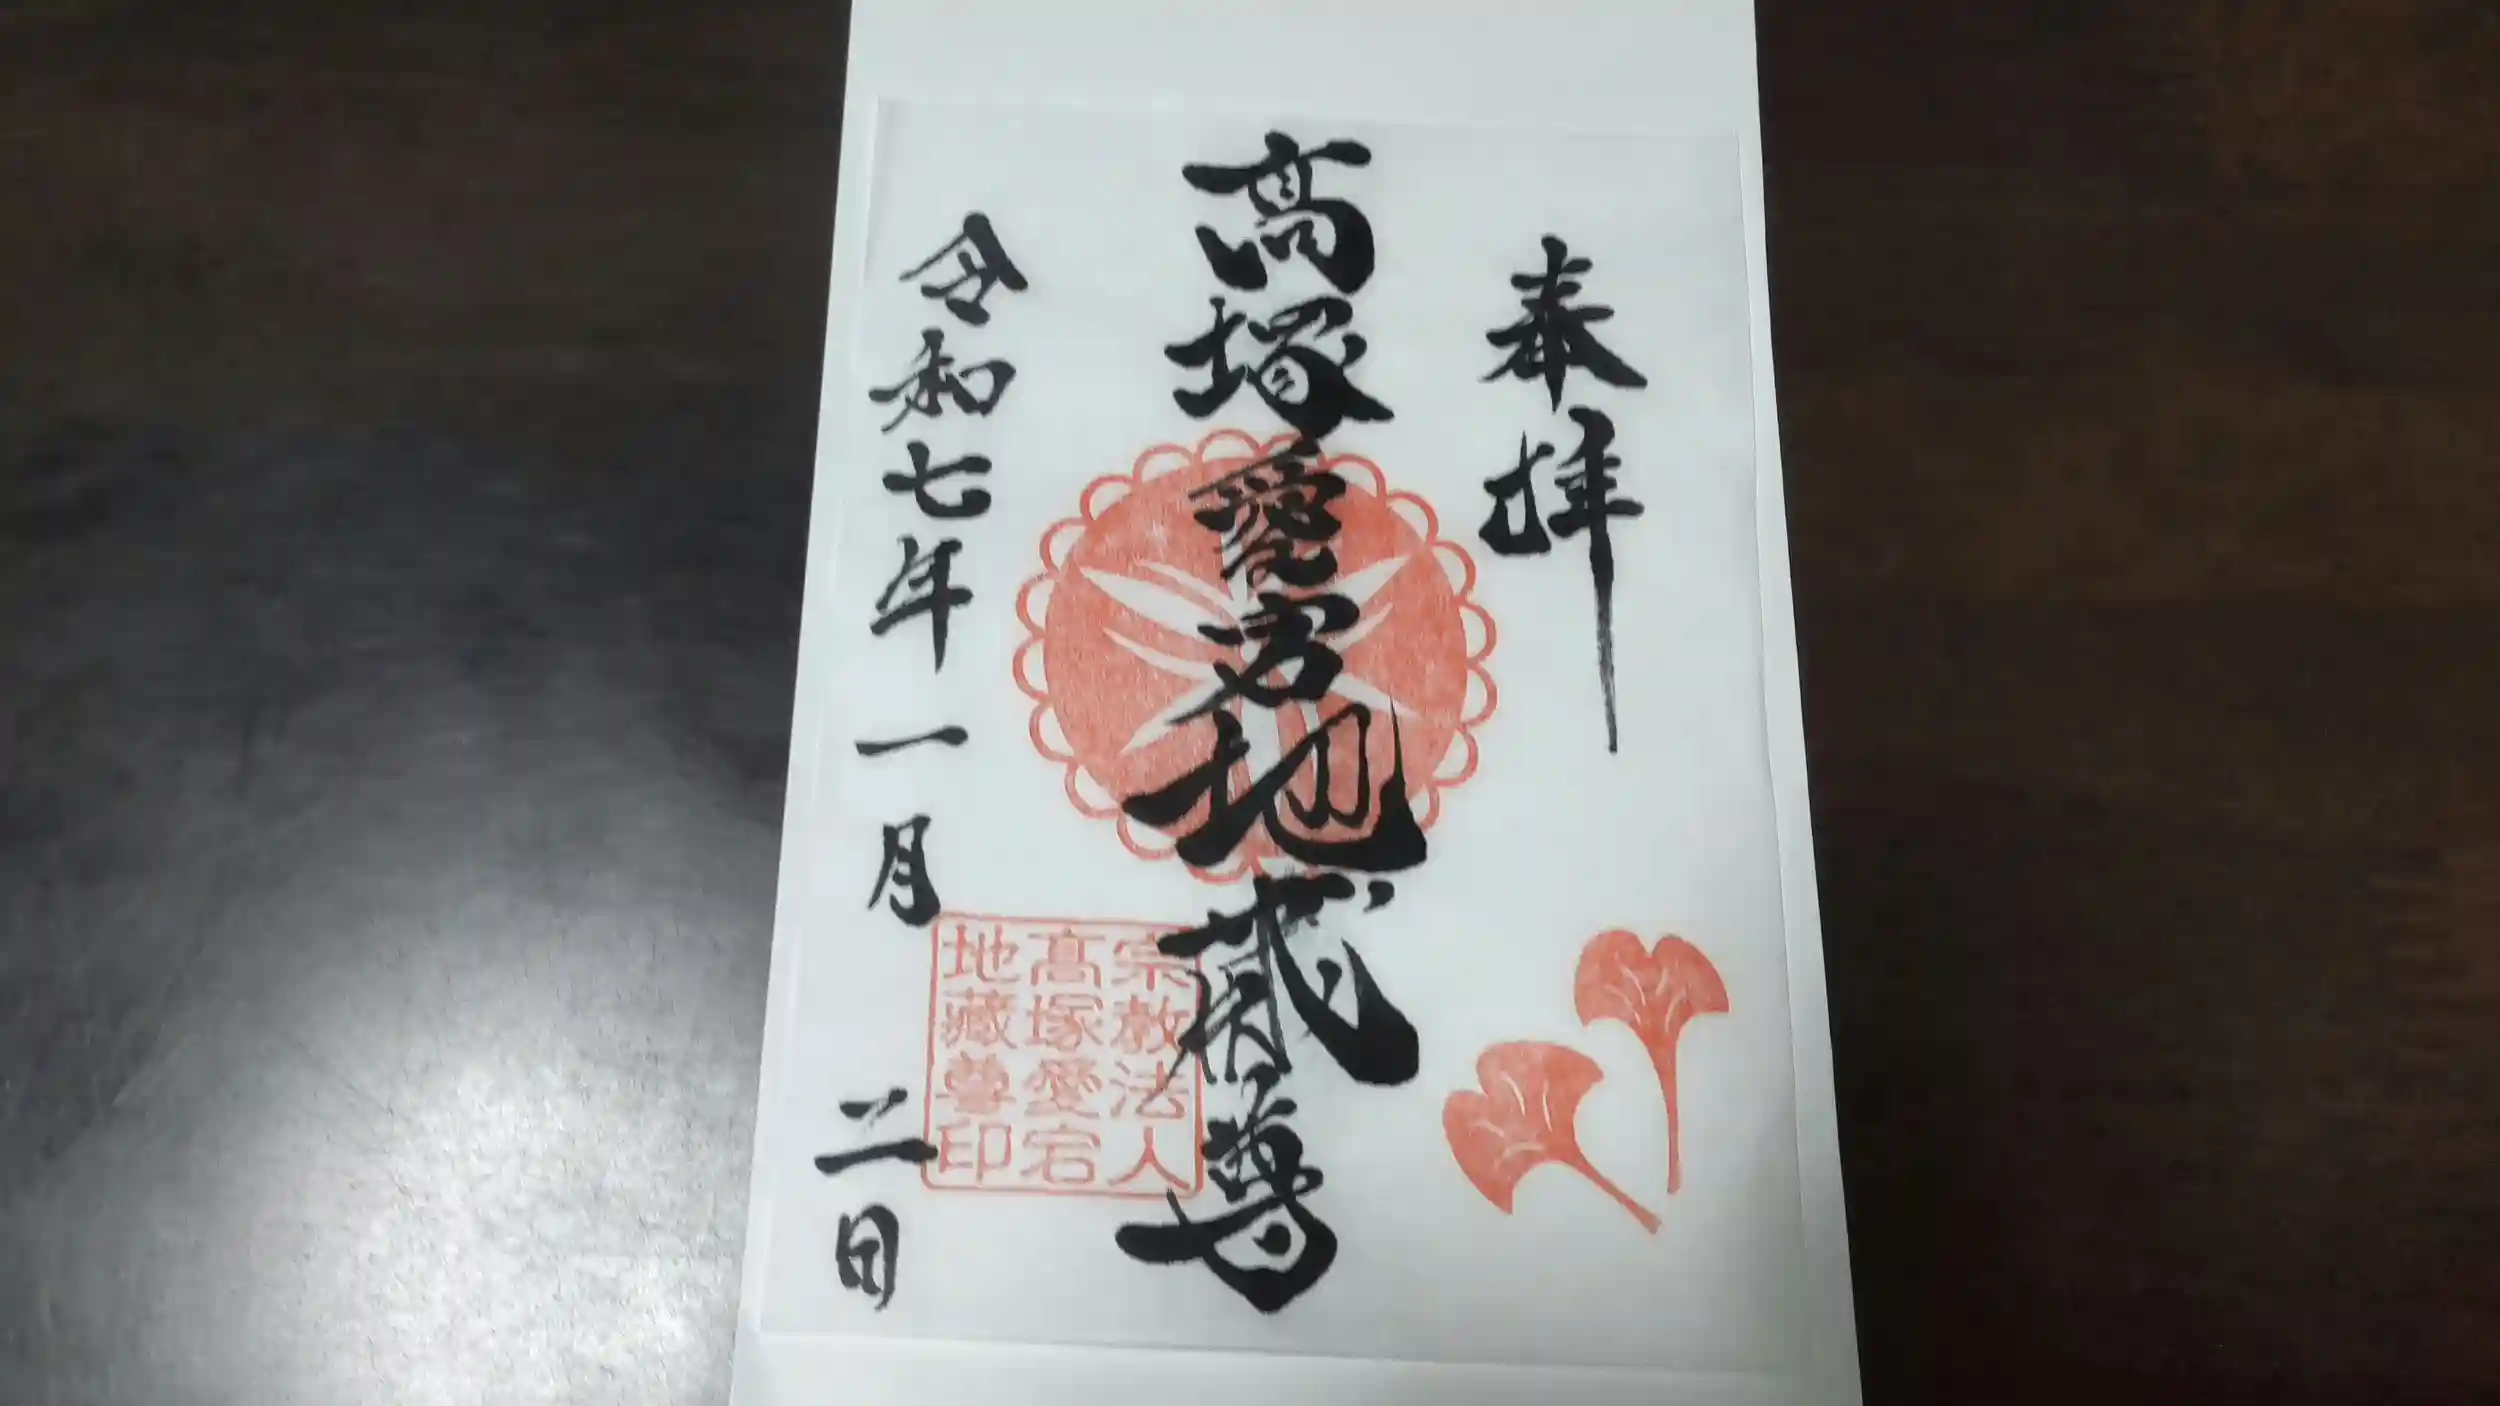 奉拝
高塚愛宕地蔵尊
宗教法人
高塚愛宕
地蔵尊印
令和七年一月二日